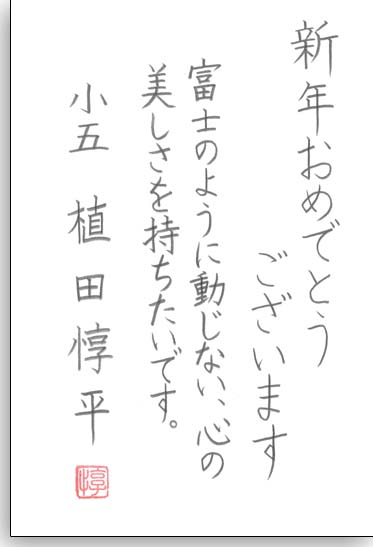 新年おめでとう
ございます
富士のように動じない、心の
美しさを持ちたいです。
小五 植田惇平
惇